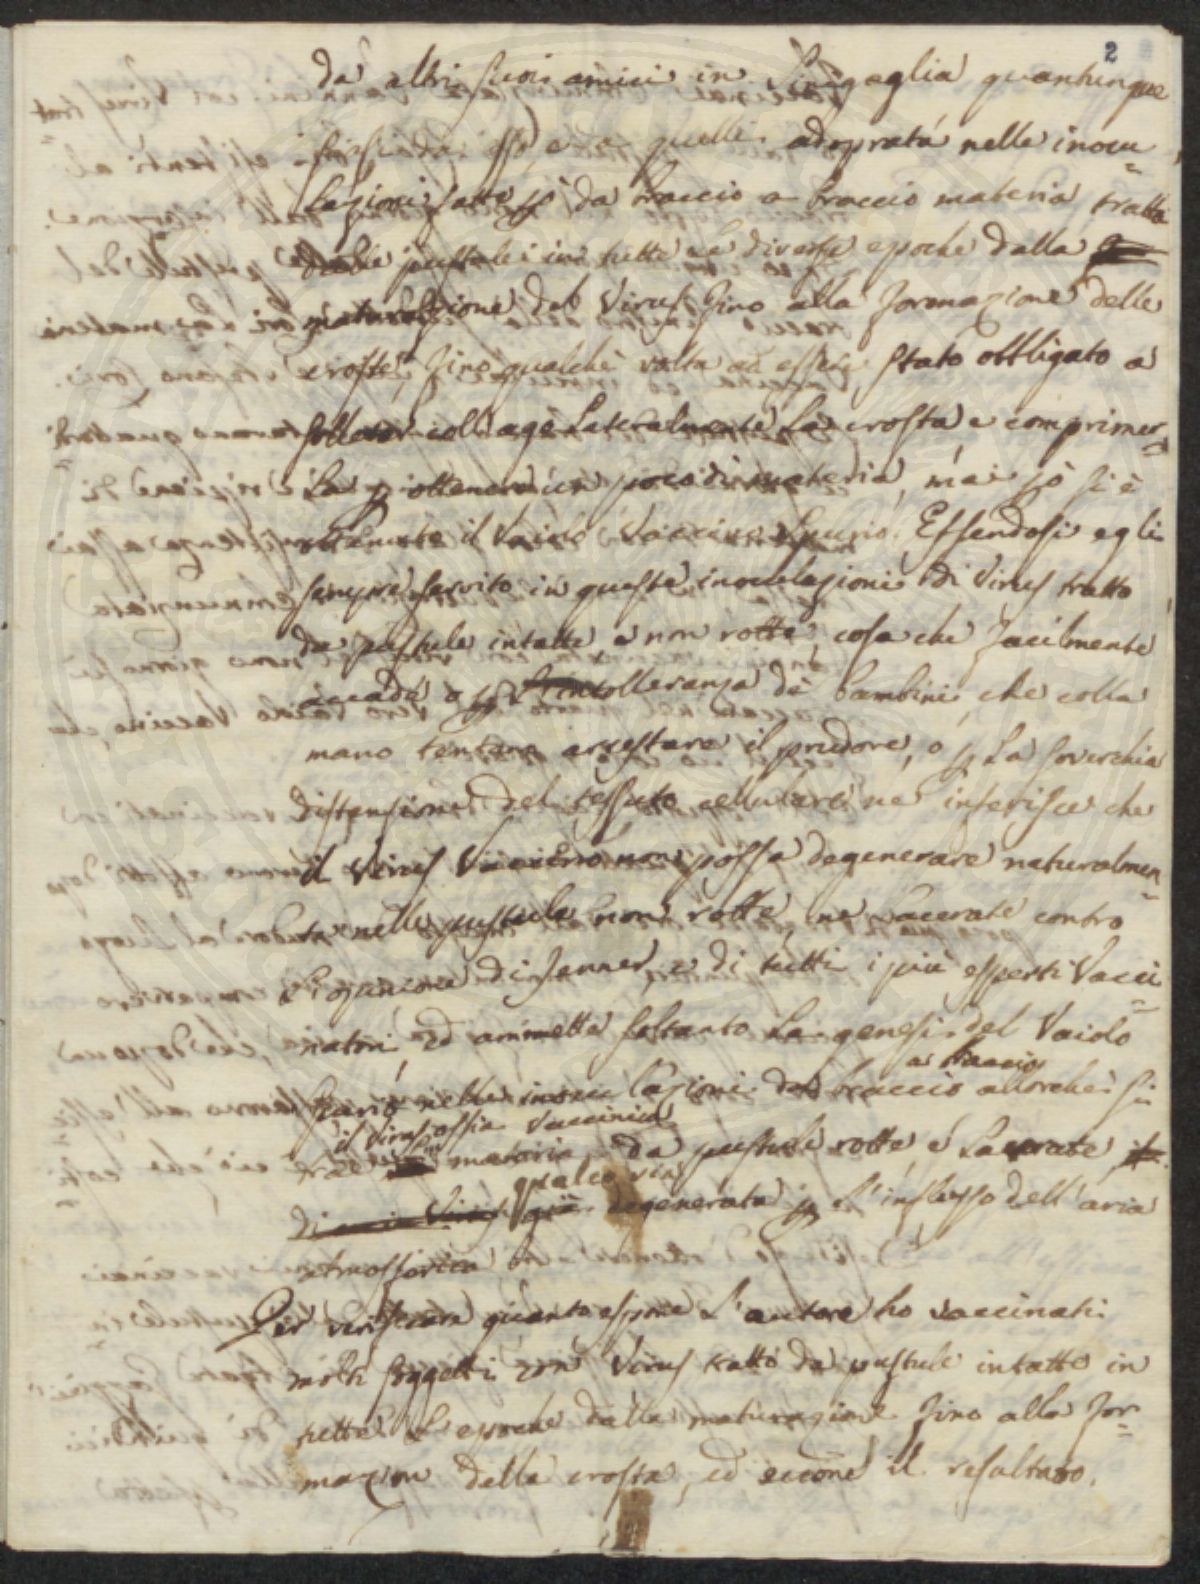 2
da altri suoi amici in Sinigaglia quantunque
siasi da esso e a quelli adoprata nelle inocu=
lazioni fatte p da braccio a braccio materia tratta
dalle pustule in tutte le diverse epoche dalla
maturazione del Virus fino alla formazione delle
croste, fino qualche volta ad essere stato obbligato a
sollevar coll'ago lateralmente la crosta e comprimer=
la p ottenere un poco di materia, mai pò si è
ottenuto il Vaiolo Vaccino spurio. Essendosi egli
sempre servito in queste inoculazioni di Virus tratto
da pustule intatte e non rotte, cosa che facilmente
accade o p l'intolleranza de' bambini, che colla
mano tentano arrestare il prudore, o p la soverchia
distensione del tessuto cellulare ne inferisce che
il Virus Vaccino non possa degenerare naturalmen=
te nelle pustule non rotte, ne lacerate contro
l'opinione di Jenner, e di tutti i più esperti Vacci=
natori, ed ammette soltanto la genesi del Vaiolo
a braccio
spurio nelle inoculazioni da braccio allorche si
il Virus ossia Vaccinica
trae materia da pustule rotte e lacerate
di Virus già degenerata p l'influsso dell'aria
atmosferica
Per verificare quanto espone l'autore ho vaccinati
molti soggetti con Virus tratto da pustule intatte in
tutte l'epoche dalla maturazione fino alla for=
mazion della crosta, ed eccone il resultato.